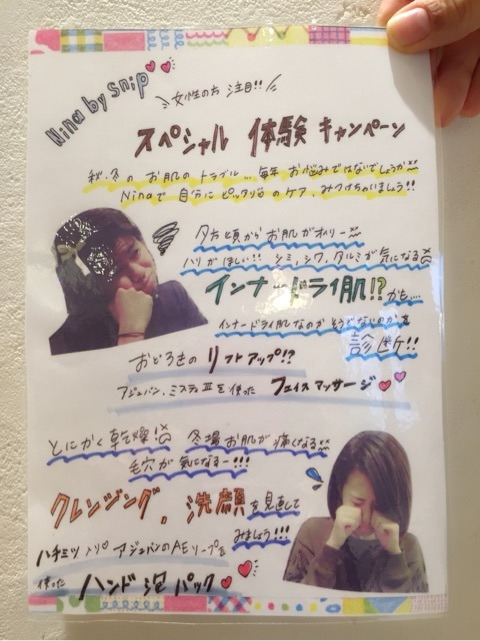 Nina by snip
女性の方 注目!!
スペシャル 体験 キャンペーン
秋、冬の お肌の トラブル... 毎年 お悩みではないでしょうか
Ninaで 自分に ピッタリの ケア、みつけちゃいましょう!!
夕方頃からお肌がオイリー
ハリがほしい!! シミ、シワ、タルミが気になる
インナードライ肌!? かも...
インナードライ肌なのか どうでないのかを
診断!!
おどろきの リフトアップ!?
アジュバン、ミスティⅢを使った フェイスマッサージ
とにかく乾燥! 冬場お肌が痛くなる
毛穴が気になるー!!!
クレンジング、洗顔を見直して
みましょう!!!
ハチミツ入り アジュバンのAEソープを
使った ハンド泡パック